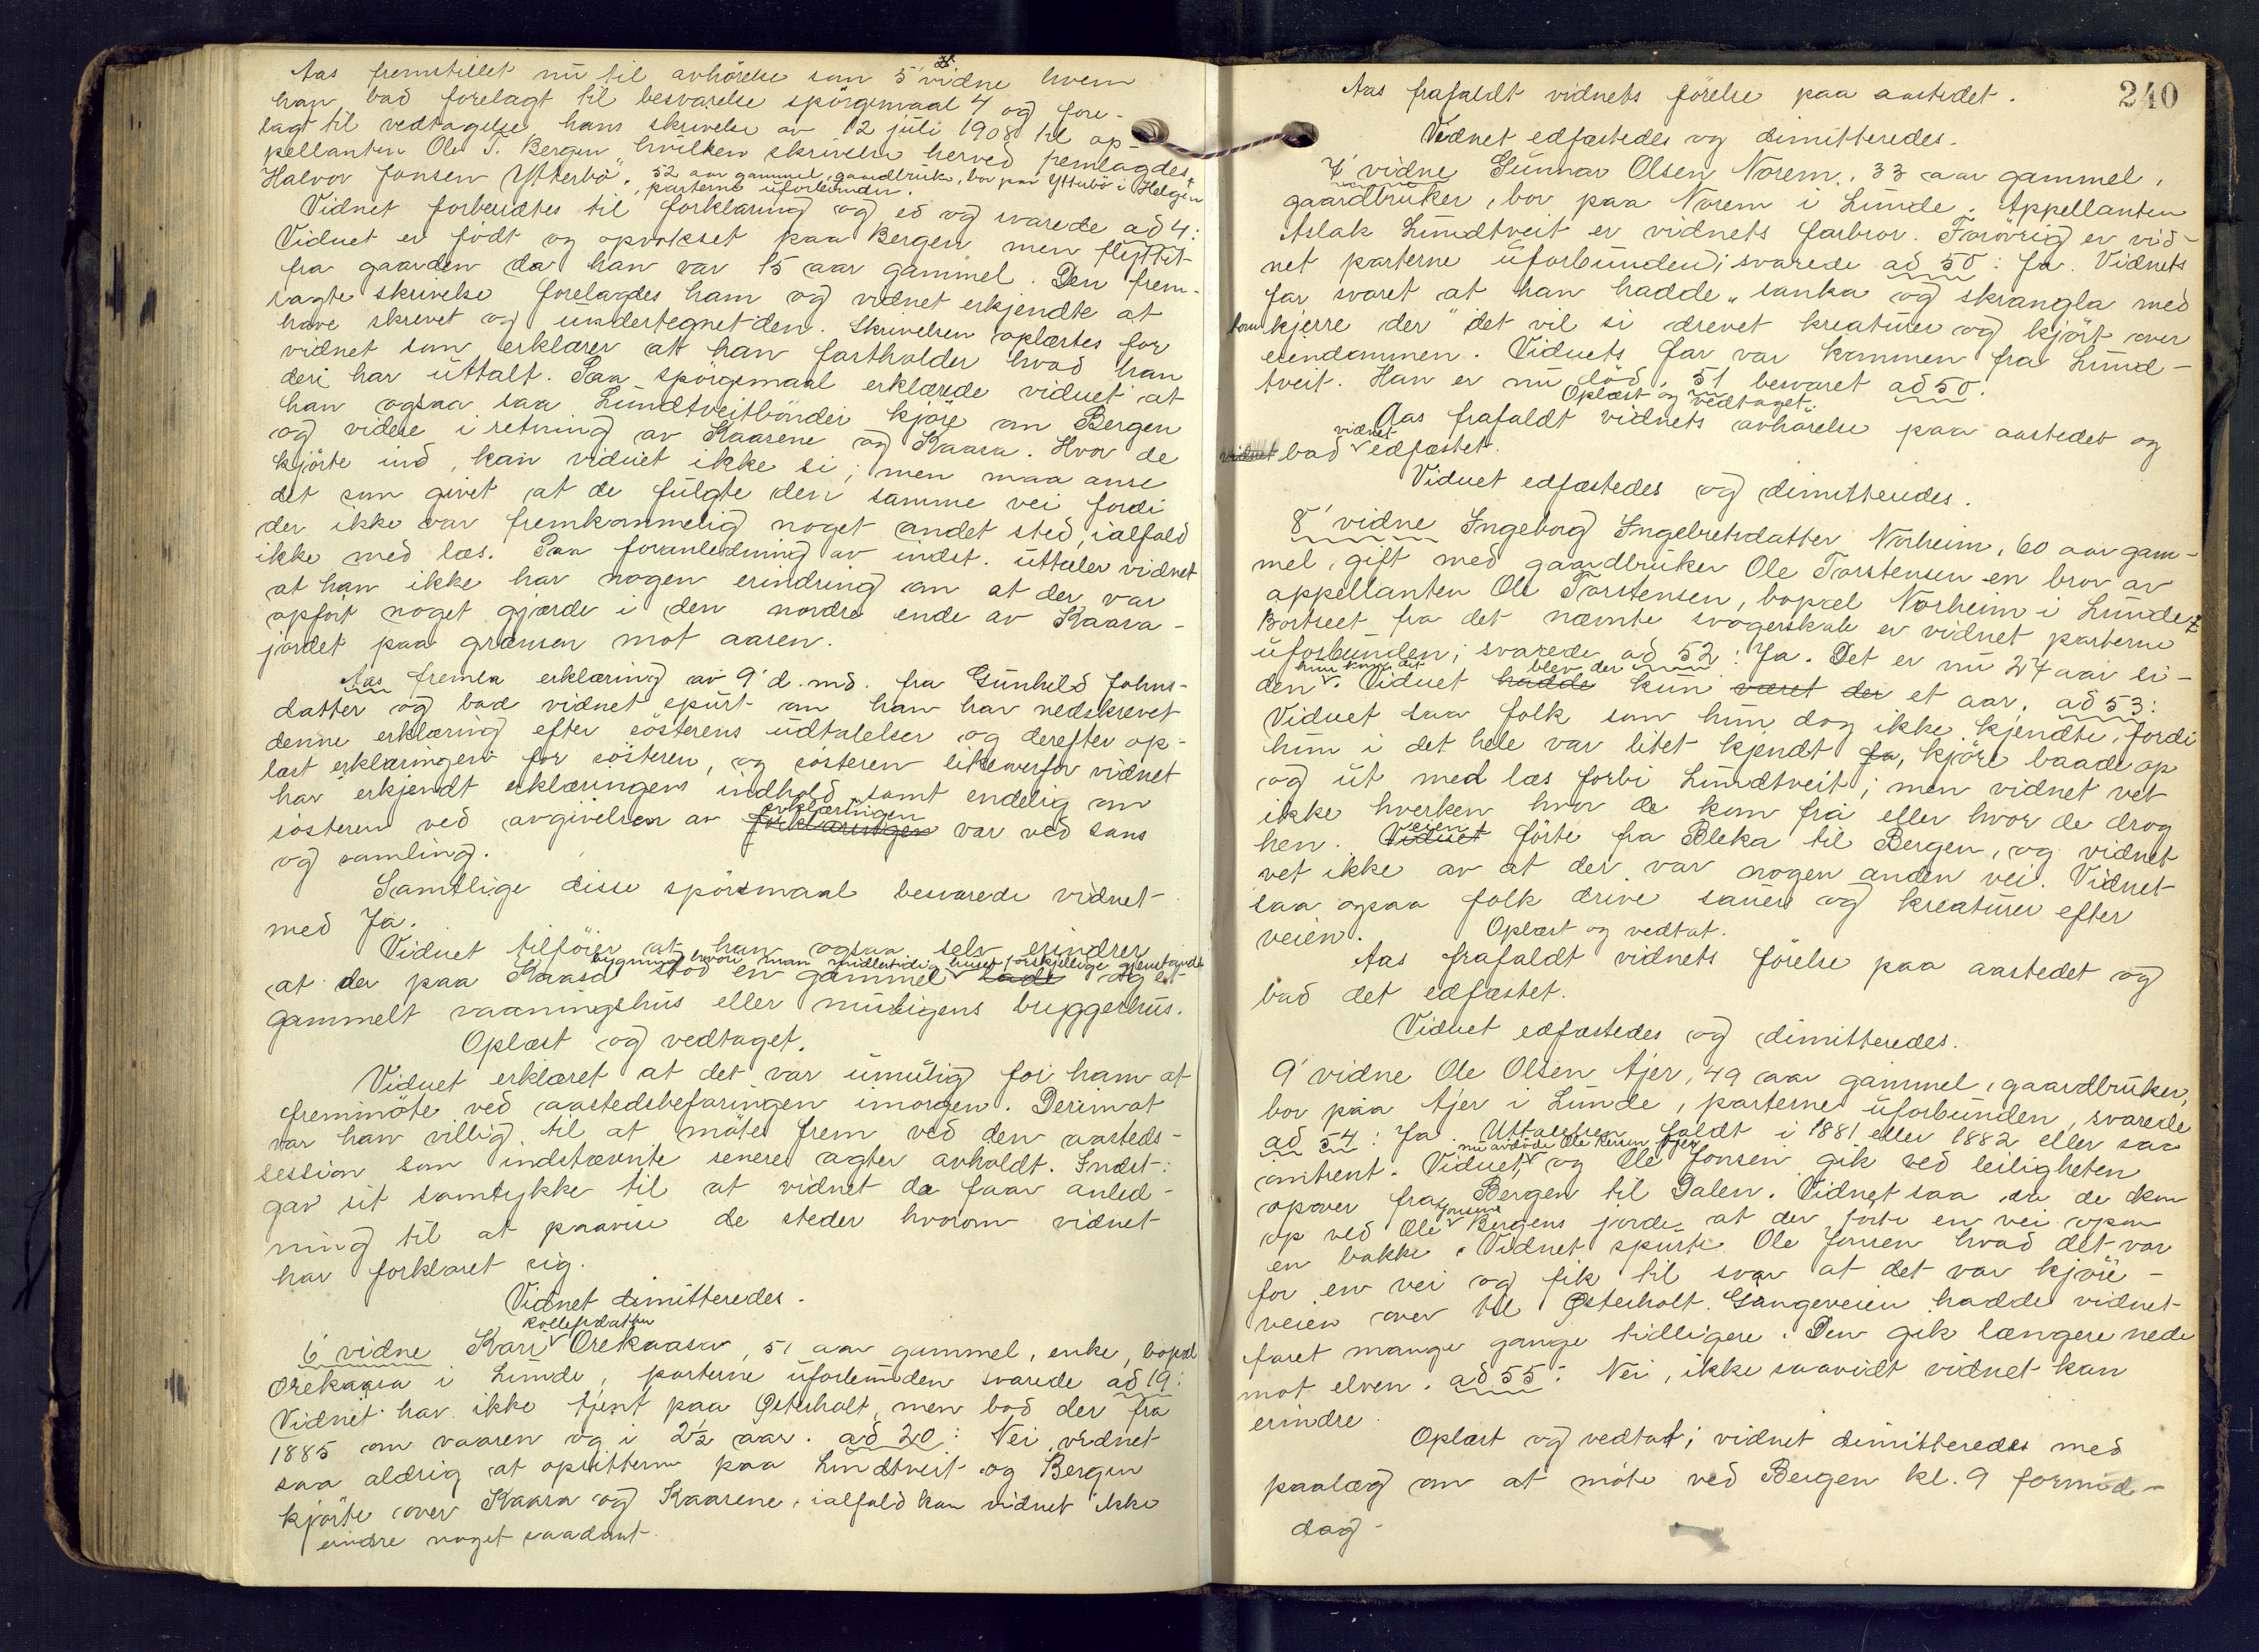 Aas fremstillet nu til avhörelse som 5' vidne hvem
han bad forelagt til besvarelse spörgsmaal 4 og fore-
lagt til vedtagelse hans skrivelse av 12 juli 1908 til ap-
pellanten Ole T. Bergen hvilken skrivelse herved fremlagdes.
Halvor Jonsen Ytterbö, 52 aar gammel, gaardbruker, bor paa Ytterbö i Helgen
parterne uforbunden.
Vidnet forberedtes til forklaring og ed og svarede ad 4:
Vidnet er födt og opvokset paa Bergen men flyttet
fra gaarden da han var 15 aar gammel. Den frem-
lagte skrivelse forelagdes ham og vidnet erkjendte at
have skrevet og undertegnet den. Skrivelsen oplæstes for
vidnet som erklærer at han fastholder hvad han
deri har uttalt. Paa spörgsmaal erklærede vidnet at
han ogsaa saa Lundtveitbönder kjöre om Bergen
og videre i retning av Kaasene og Kaasa. Hvor de
kjörte ind, kan vidnet ikke si; men maa anse
det som givet at de fulgte den samme vei fordi
der ikke var fremkommelig noget andet sted, ialfald
ikke med læs. Paa foranledning av indst. uttaler vidnet
at han ikke har nogen erindring om at der var
opfört noget gjærde i den nordre ende av Kaasa-
jordet paa grænsen mot aasen.
Aas fremla erklæring av 9' d. md. fra Gunhild Johns-
datter og bad vidnet spurt om han har nedskrevet
denne erklæring efter sösterens udtalelser og derefter op-
læst erklæringen for sösteren, og sösteren likeoverfor vidnet
har erkjendt erklæringens indhold samt endelig om
sösteren ved avgivelsen av forklaringen erklæringen var ved sans
og samling.
Samtlige disse spörsmaal besvarede vidnet
med Ja.
Vidnet tilföier at han ogsaa selv erindrer
bygning hvori man midlertidig huset forskjellige gjenstande
at der paa Kaasa stod en gammel lade og et
gammelt vaaningshus eller muligens bryggerhus.
Oplæst og vedtaget.
Vidnet erklæret at det var umulig for ham at
fremmöte ved aastedsbefaringen imorgen. Derimot
var han villig til at möte frem ved den aasteds-
session som indstævnte senere agter avholdt. Indst.:
gav sit samtykke til at vidnet da faar anled-
ning til at paavise de steder hvorom vidnet
har forklaret sig.
Vidnet dimitteredes.
6' vidne Kari Kollefsdatter Orekaasa, 51 aar gammel, enke, bopæl
Orekaasa i Lunde, parterne uforbunden svarede ad 19:
Vidnet har ikke tjent paa Østerholt, men bod der fra
1885 om vaaren og i 2½ aar. ad 20: Nei vidnet
saa aldrig at opsitterne paa Lundtveit og Bergen
kjörte over Kaasa og Kaasene, ialfald kan vidnet ikke
erindre noget saadant.
240
Aas frafaldt vidnets förelse paa aastedet.
Vidnet edfæstedes og dimitteredes.
7' vidne Gunnar Olsen Norem, 33 aar gammel,
gaardbruker, bor paa Norem i Lunde. Appellanten
Aslak Lundtveit er vidnets farbror. Forövrig er vid-
net parterne uforbunden; svarede ad 50: Ja. Vidnets
far svaret at han hadde „ranka og skrangla med
kjerre der" det vil si drevet kreaturer og kjört over
eiendommen. Vidnets far var kommen fra Lund-
tveit. Han er nu död. 51 besvaret ad 50.
Oplæst og vedtaget.
Aas frafaldt vidnets avhörelse paa aastedet og
vidnet bad vidnet edfæstet.
Vidnet edfæstedes og dimitteredes.
8' vidne Ingeborg Ingebretsdatter Norheim, 60 aar gam-
mel, gift med gaardbruker Ole Torstensen en bror av
appellanten Ole Torstensen, bopæl Norheim i Lunde.
Bortseet fra det nævnte svogerskab er vidnet parterne
uforbunden; svarede ad 52: Ja. Det er nu 27 aar si-
den hun kom dit. Vidnet hadde blev der kun været der et aar. ad 53:
Vidnet saa folk som hun dog ikke kjendte, fordi
hun i det hele var litet kjendt fa, kjöre baade op
og ut med læs forbi Lundtveit; men vidnet vet
ikke hverken hvor de kom fra eller hvor de drog
hen. Vidnet Veien förte fra Bleka til Bergen, og vidnet
vet ikke av at der var nogen anden vei. Vidnet
saa ogsaa folk drive sauer og kreaturer efter
veien. Oplæst og vedtat.
Aas frafaldt vidnets förelse paa aastedet og
bad det edfæstet.
Vidnet edfæstedes og dimitteredes.
9' vidne Ole Olsen Ajer, 49 aar gammel, gaardbruker,
bor paa Ajer i Lunde, parterne uforbunden, svarede
ad 54: Ja. Uttalelsen faldt i 1881 eller 1882 eller saa
omtrent. Vidnet, nu avdöde Ole Ajer og Ole Jonsen gik ved leiligheten
opover fra Bergen til Dalen. Vidnet saa da de kom
op ved Ole Jonsens Bergens jorde at der förte en vei opover
en bakke. Vidnet spurte Ole Jonsen hvad det var
for en vei og fik til svar at det var kjöre-
veien over til Østerholt. Gangeveien hadde vidnet
faret mange gange tidligere. Den gik længere nede
mot elven. ad 55: Nei, ikke saavidt vidnet kan
erindre.
Oplæst og vedtat; vidnet dimitteredes med
paalæg om at möte ved Bergen kl. 9 formid-
dag.